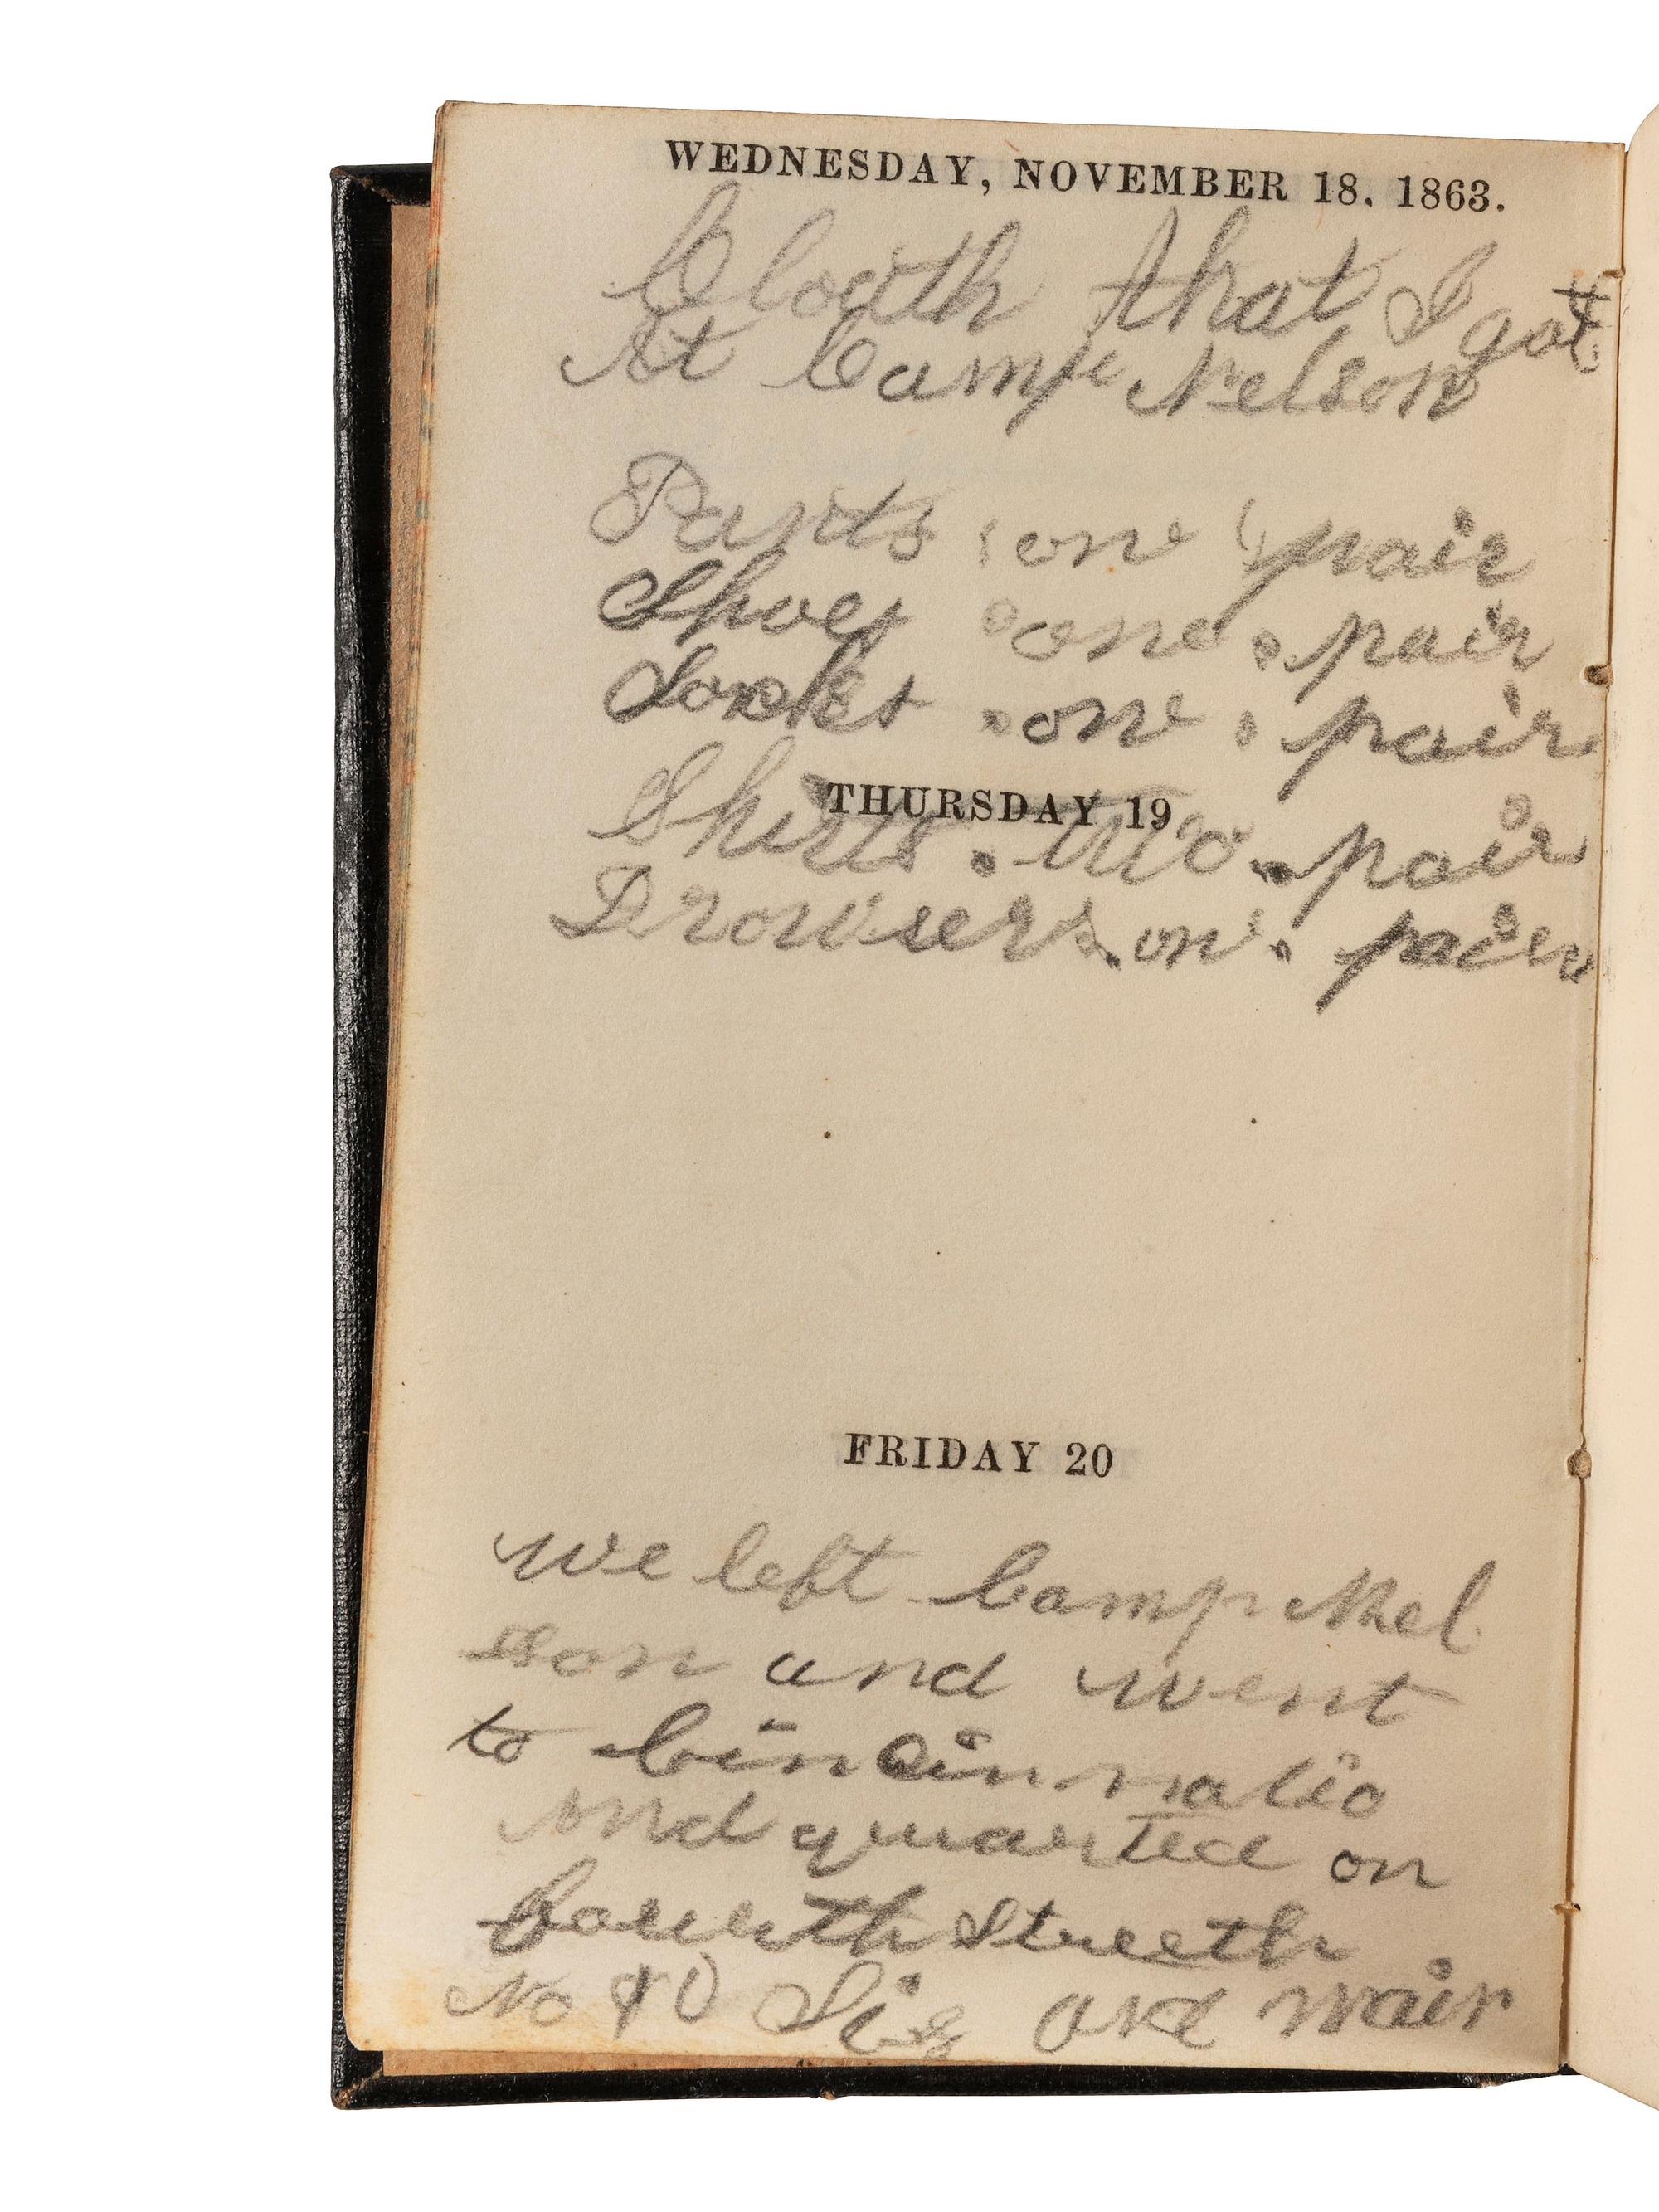 WEDNESDAY, NOVEMBER 18, 1863.
Clouth that I got
At Camp Nelson
Pants one pair
Shoes one pair
Sockes one pair
THURSDAY 19
Shirts two pair
Drowsers on pair
FRIDAY 20
we left Camp Nel
son and went
to Cincinnatio
and quarted on
Fourth Streeth
No